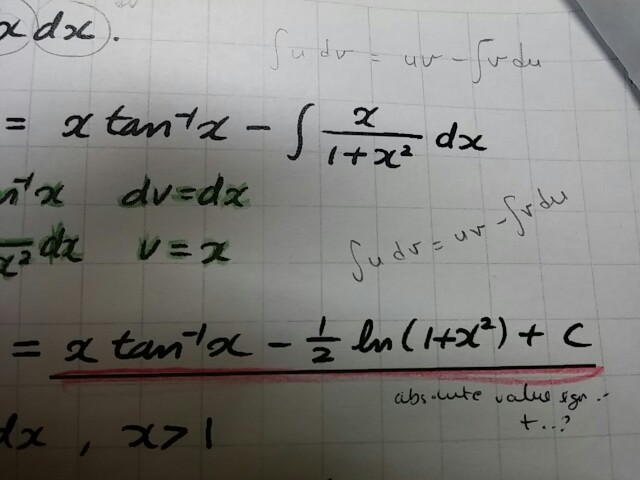 x dx.
∫u dv = uv - ∫v du
= x tan⁻¹x - ∫ x/(1+x²) dx
n⁻¹x dv = dx
x² dx v = x
∫u dv = uv - ∫v du
= x tan⁻¹x - 1/2 ln(1+x²) + C
absolute value sgn
+..?
dx , x > 1